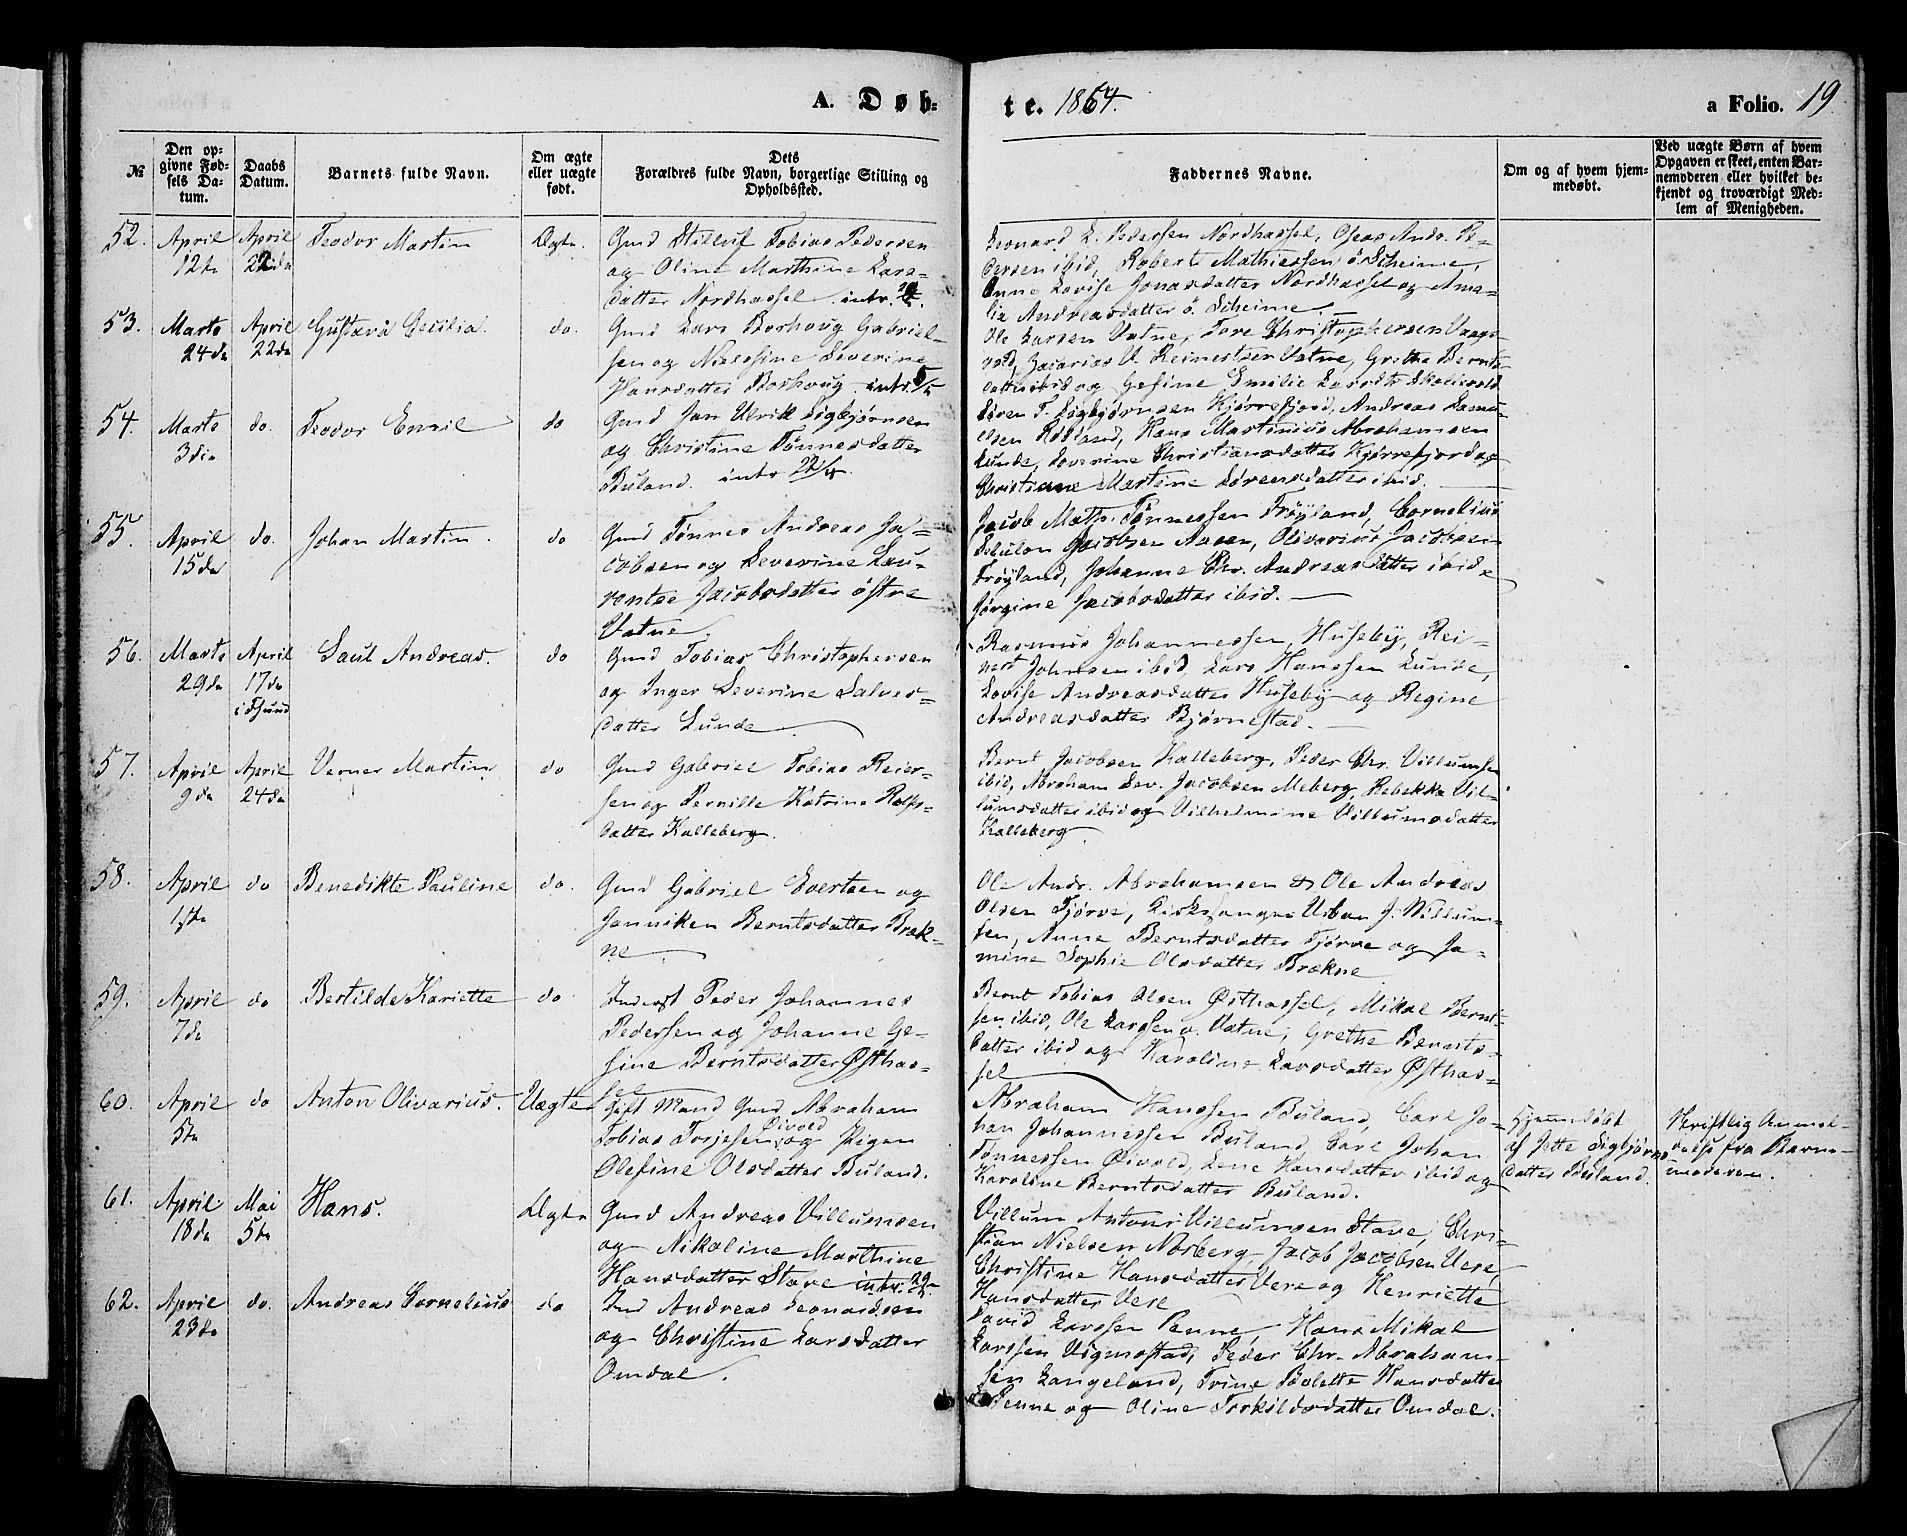 A. Døb-
te. 1864.
a Folio. 19
№
Den op-
givne Fød-
sels Da-
tum.
Daabs
Datum.
Barnets fulde Navn.
Om ægte
eller uægte
født.
Dets
Forældres fulde Navn, borgerlige Stilling og
Opholdssted.
Faddernes Navne.
Om og af hvem hjem-
medøbt.
Ved uægte Børn af hvem
Opgaven er skeet, enten Bar-
nemoderen eller hvilket be-
kjendt og troværdigt Med-
lem af Menigheden.
52.
April
12te
April
22de
Teodor Martin
Ægte.
Gmd Stilluf Tobias Pedersen
og Oline Marthine Lars-
datter Nordhassel. intr.
Leonard L. Pedersen Nordhassel, Oseas Andr. Pe-
dersen ibid, Robert Mathiessen ø. Skeime,
Anne Lovise Jonasdatter Nordhassel og Ama-
lia Andreasdatter ø. Skeime.
53.
Marts
24de
April
22de
Gustava Cecilia.
do.
Gmd Lars Borhoug Gabriel-
sen og Nielsine Severine
Hansdatter Borhoug. intr.
Ole Larsen Vatne, Tore Christophersen Vaags-
vold, Zacarias V. Reinertsen Vatne, Grethe Bernts-
datter ibid og Gesine Emilie Larsdtr Skollevold
54.
Marts
3die
do.
Teodor Emil
do
Gmd Jan Ulrik Sigbjørnsen
og Christine Tønnesdatter
Buland. intr 22/4.
Søren T. Sigbjørnsen Kjørrefjord, Andreas Samu-
elsen Rødland, Hans Martinius Abrahamsen
Lunde, Severine Christiansdatter Kjørrefjord og
Christiane Martine Sørensdatter ibid.
55.
April
15de
do.
Johan Martin.
do
Gmd Tønnes Andreas Ja-
cobsen og Severine Lau-
rentse Jacobsdatter østre
Vatne.
Jacob Math. Tønnessen Frøyland, Cornelius
Sebulon Jacobsen Aasen, Olivarius Jacobsen
Frøyland, Johanne Chr. Andreasdatter ibid &
Jørgine Jacobsdatter ibid.
56.
Marts
29de
April
17de
Saul Andreas.
do
Gmd Tobias Christophersen
og Inger Severine Salves-
datter Lunde
Rasmus Johannessen Huseby, Rei-
nert Johnsen ibid, Lars Hanssen Lunde,
Lovise Andreasdatter Huseby og Regine
Andreasdatter Bjørnestad.
57.
April
9de
April
24de
Verner Martin
do
Gmd Gabriel Tobias Reier-
sen og Pernille Katrine Rolfs-
datter Kalleberg.
Bernt Jacobsen Kalleberg, Peder Chr. Villumsen
ibid, Abraham Sev. Jacobsen Meberg, Rebekka Vil-
lumsdatter ibid og Vilhelmine Villumsdatter
Kalleberg
58.
April
1ste
do
Benedikte Pauline
do.
Gmd Gabriel Evertsen og
Janniken Berntsdatter Bræk-
ne
Ole Andr. Abrahamsen & Ole Andreas
Olsen Tjørve, Kirkesanger Urban J. Villum-
sen, Anne Berntsdatter Tjørve og Ja-
mine Sophie Olsdatter Brækne
59.
April
7de
do
Bertilde Hariette
do
Inderst Peder Johannes
Pedersen og Johanne Ge-
sine Berntsdatter Østhas-
sel
Bernt Tobias Olsen Østhassel, Mikal Bernt-
sen ibid, Ole Larssen v. Vatne, Grethe Bernts-
datter ibid og Karoline Larsdatter Østhas-
sel
60.
April
5te
do
Anton Olivarius.
Uægte
Gift Mand Gmd Abraham
Tobias Torjesen Øivold og Pigen
Olefine Olsdatter Buland.
Abraham Hanssen Buland, Carl Jo-
han Johannessen Buland, Carl Johan
Tønnessen Øivold, Lene Hansdatter ibid og
Karoline Berntsdatter Buland.
Hjemmedøbt
af Jette Sigbjørns-
datter Buland.
Skriftlig Anmel-
delse fra Barne-
moderen.
61.
April
18de
Mai
5te
Hans.
Ægte
Gmd Andreas Villumsen
og Nikoline Marthine
Hansdatter Stave intr.
Villum Anton Villumsen Stave, Chri-
stian Nielsen Norberg, Jacob Jacobsen Vere,
Christine Hansdatter Vere og Henriette
Hansdatter Vere
62.
April
23de
do.
Andreas Cornelius
do
Ind Andreas Leonardsen
og Christine Larsdatter
Omdal.
David Larssen Penne, Hans Mikal
Larssen Vigmostad, Peder Chr. Abraham-
sen Langeland, Trine Bolette Hansdatter
Penne og Oline Torkildsdatter Omdal.